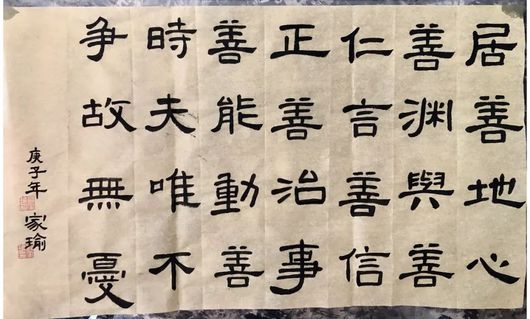 居善地心
善渊與善
仁言善信
正善治事
善能動善
時夫唯不
争故無憂
庚子年家瑜